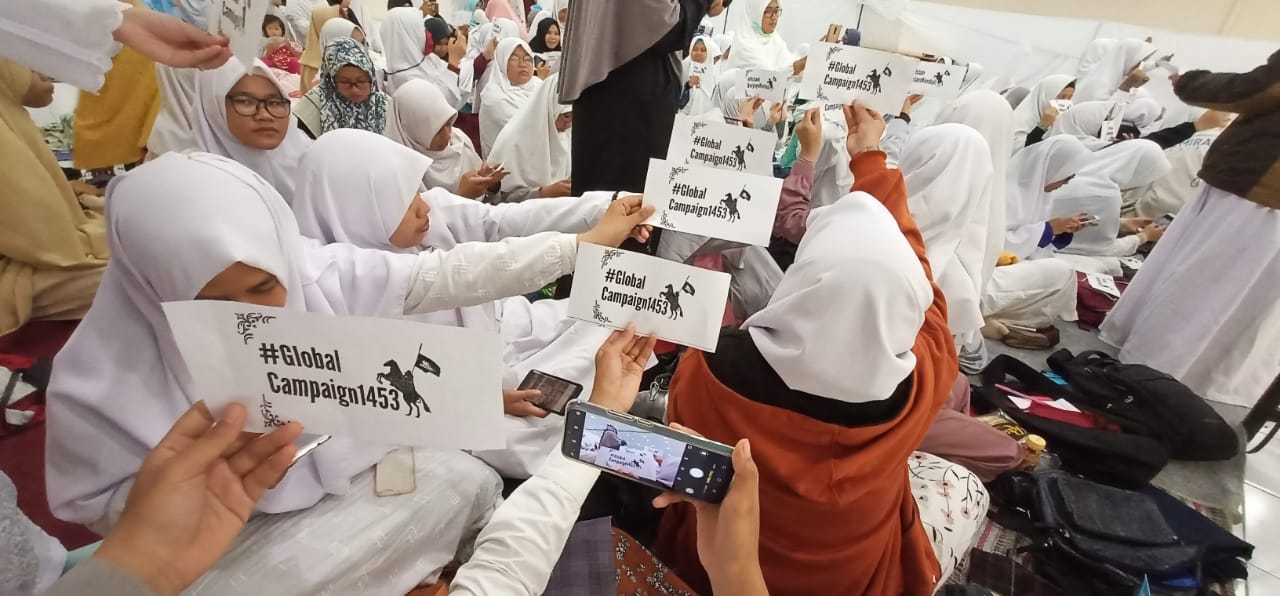 #Global
Campaign1453
#Global
Campaign1453
#Global
Campaign1453
#Global
Campaign1453
#Global
Campaign1453